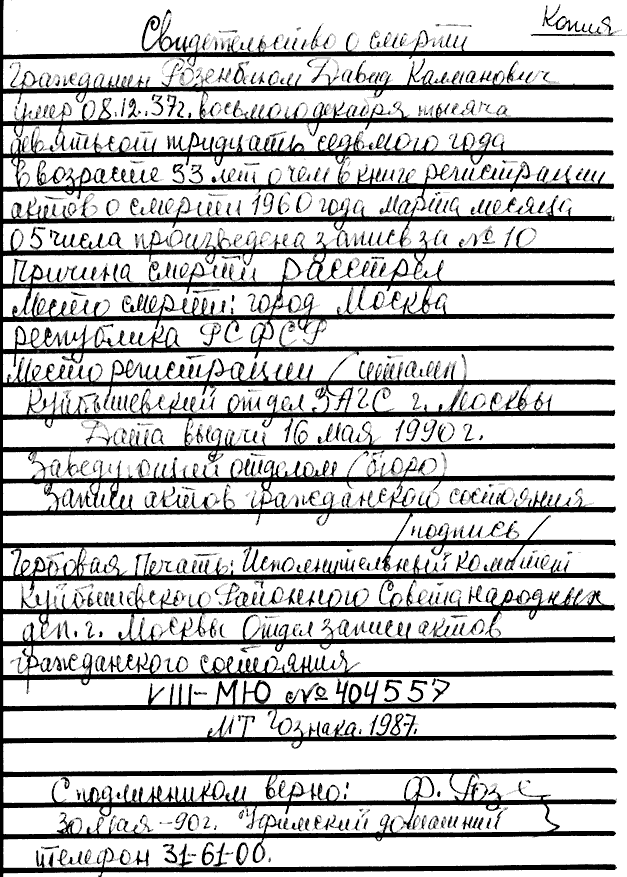 Копия
Свидетельство о смерти
Гражданин Розенблюм Давид Калманович
умер 08.12.37г. восьмого декабря тысяча
девятьсот тридцать седьмого года
в возрасте 33 лет о чем в книге регистрации
актов о смерти 1960 года марта месяца
05 числа произведена запись за № 10
Причина смерти расстрел
Место смерти: город Москва
республика РСФСР
Место регистрации (штамп)
Куйбышевский отдел ЗАГС г. Москвы
Дата выдачи 16 мая 1990г.
Заведующий отделом (бюро)
Записи актов гражданского состояния
/подпись/
Гербовая Печать: Исполнительный комитет
Куйбышевского Районного Совета народных
деп. г. Москвы Отдел записи актов
гражданского состояния
VIII-МЮ № 404557
МТ Гознака. 1987.
С подлинником верно: Ф. Роз
30 мая -90г. Уфимский домашний
телефон 31-61-00.